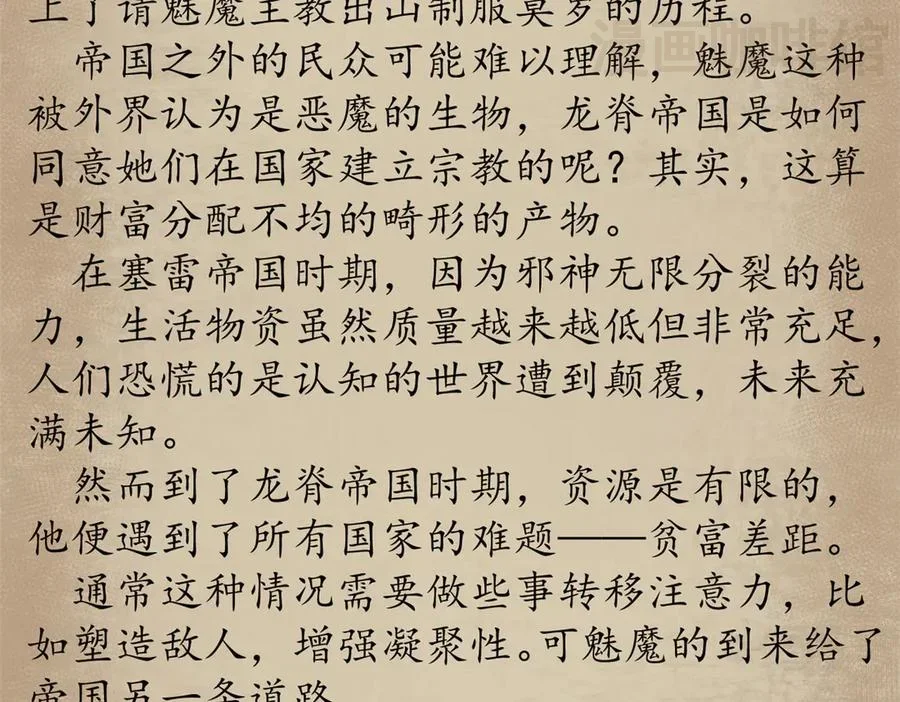 上了请魅魔主教出山制服莫罗的历程。
漫画咖啡馆
帝国之外的民众可能难以理解，魅魔这种
被外界认为是恶魔的生物，龙脊帝国是如何
同意她们在国家建立宗教的呢？其实，这算
是财富分配不均的畸形的产物。
在塞雷帝国时期，因为邪神无限分裂的能
力，生活物资虽然质量越来越低但非常充足，
人们恐慌的是认知的世界遭到颠覆，未来充
满未知。
然而到了龙脊帝国时期，资源是有限的，
他便遇到了所有国家的难题——贫富差距。
通常这种情况需要做些事转移注意力，比
如塑造敌人，增强凝聚性。可魅魔的到来给了
帝国另一条道路